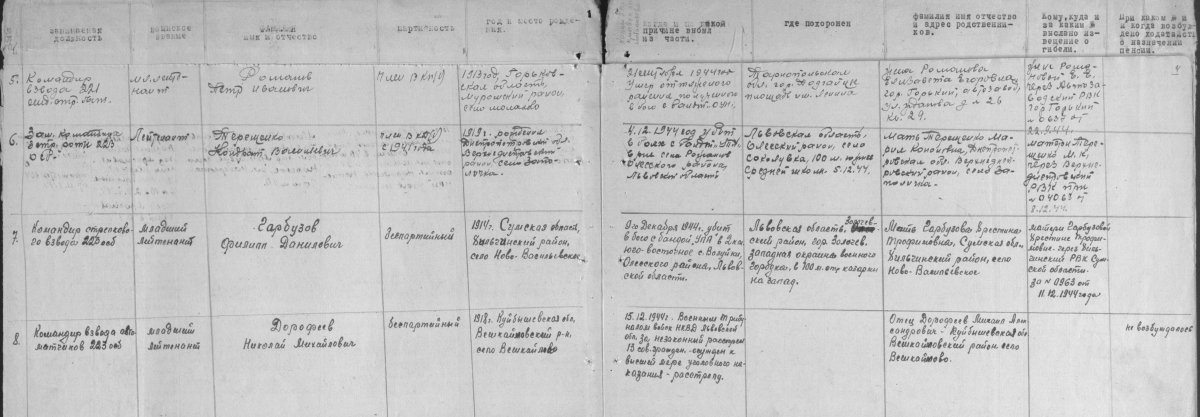 занимаемая
должность
воинское
звание
фамилия
имя и отчество
партийность
год и место рожде-
ния.
когда и по какой
причине выбыл
из части.
где похоронен
фамилия имя отчество
и адрес родственни-
ков.
Кому, куда и
за каким №
выслано из-
вещение о
гибели.
При каком №
и когда возбуж-
дено ходатайство
о назначении
пенсии.
5.
Командир
взвода 221
мл. лейте-
нант
Романов
Петр Иванович
член ВКП(б)
1913 год, Горьков-
ская область,
район,
село
1944 года
Умер от тяжелого
ранения полученного
в бою с
Тарнопольская
обл. гор. Подгайцы
площадь им. Ленина
жена Романова
Елизавета Егоровна,
гор. Горький, автозавод,
ул. Жданова д № 26
кв. 29.
жене Рома-
новой Е. Е.
через Автоза-
водский РВК
гор. Горький
№ 0637 от
22.9.44.
6.
Зам. командира
стр. роты 223
ОСБ-
Лейтенант
Терещенко
Кондрат
член ВКП(б)
с 1941 года
1919 г. рождения
Днепропетровская обл.
район, село
4.12.1944 года убит
в бою с банд. УПА
в р-не села
Олесского района
Львовской области
Львовская область,
Олесский район, село
Соколувка, 100 м. южнее
Средней школы. 5.12.44.
Мать Терещенко Ма-
рия Кононовна, Днепропет-
ровская обл.
район, село
матери Тере-
щенко М. К.
через Верхне-
РВК при
№ 04063 от
8.12.44.
7.
Командир стрелково-
го взвода 223 осб
младший
лейтенант
Гарбузов
Филипп Данилович
беспартийный
1914 г. Сумская область,
район,
село Ново-Васильевское
9го Декабря 1944 г. убит
в бою с бандой „УПА" в 2 км.
юго-восточнее с. Волуйки,
Олесского района, Львов-
ской области.
Львовская область, Золочев-
ский район, гор. Золочев.
западная окраина военного
городка, в 100 м. от казармы
на запад.
Мать Гарбузова Крестина
Трофимовна, Сумская обл.
район, село
Ново-Васильевское
матери Гарбузовой
Крестине Трофи-
мовне. через
РВК Сум-
ской области.
за № 0963 от
11.12.1944 года
8.
Командир взвода авто-
матчиков 223 осб
младший
лейтенант
Дорофеев
Николай Михайлович
беспартийный
1918 г. Куйбышевская обл,
Вешкаймовский р-н,
село Вешкаймово
15.12.1944 г. Военным Триб-
уналом войск НКВД Львовской
обл. за незаконный расстрел
13 сов. граждан. осужден к
высшей мере уголовного на-
казания - расстрелу.
Отец Дорофеев Михаил Алек-
сандрович - Куйбышевская обл.
Вешкаймовский район село
Вешкаймово.
не возбуждается